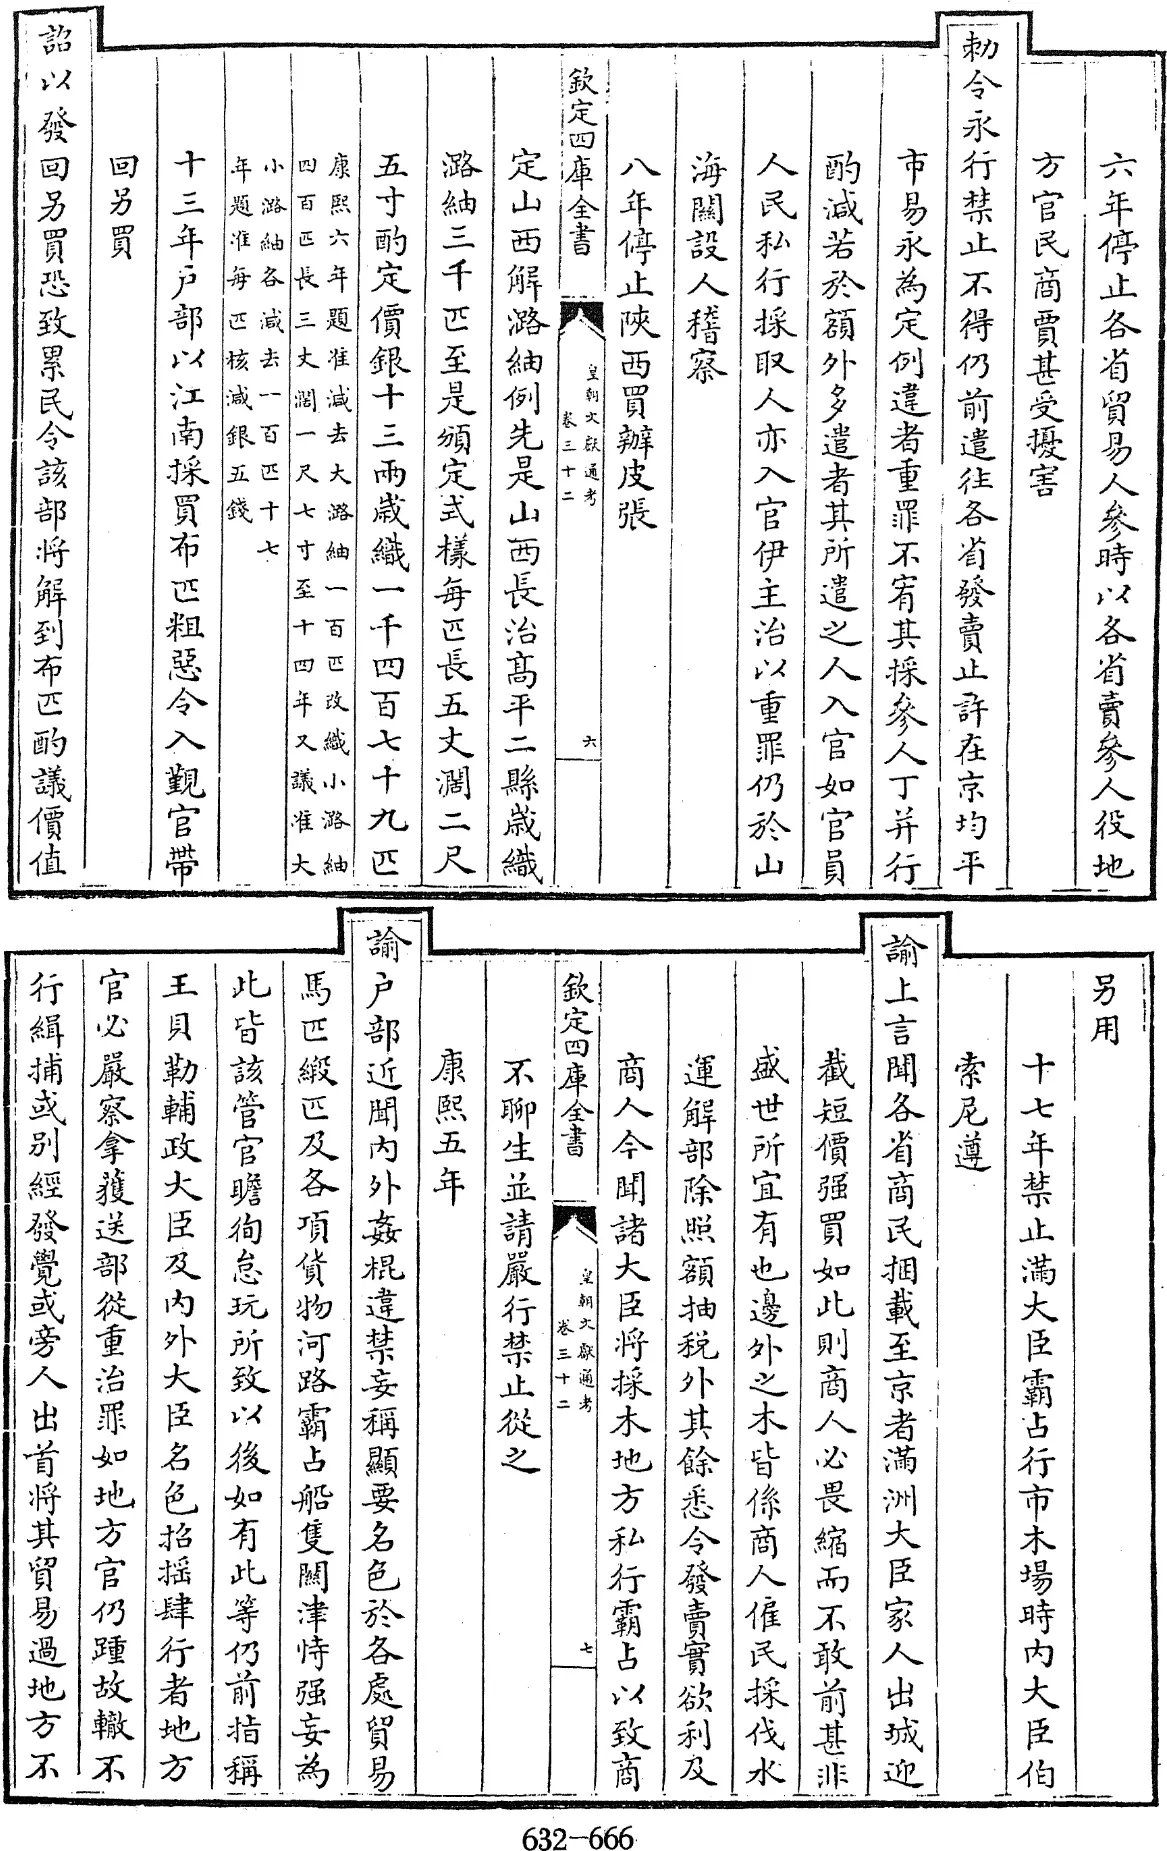 六年停止各省貿易人參時以各省賣參人役地
方官民商賈甚受擾害
勅令永行禁止不得仍前遣往各省發賣止許在京均平
市易永為定例違者重罪不宥其採參人丁并行
酌減若於額外多遣者其所遣之人入官如官員
人民私行採取人亦入官伊主治以重罪仍於山
海關設人稽察
八年停止陜西買辦皮張
欽定四庫全書
皇朝文獻通考
卷三十二
六
定山西解潞紬例先是山西長治高平二縣歲織
潞紬三千匹至是頒定式樣每匹長五丈濶二尺
五寸酌定價銀十三兩歲織一千四百七十九匹
康熙六年題准減去大潞紬一百匹改織小潞紬
四百匹長三丈濶一尺七寸至十四年又議准大
小潞紬各減去一百匹十七
年題准每匹核減銀五錢
十三年戶部以江南採買布匹粗惡令入覲官帶
回另買
詔以發回另買恐致累民令該部將解到布匹酌議價值
另用
十七年禁止滿大臣霸占行市木場時內大臣伯
索尼遵
諭上言聞各省商民捆載至京者滿洲大臣家人出城迎
截短價强買如此則商人必畏縮而不敢前甚非
盛世所宜有也邊外之木皆係商人僱民採伐水
運解部除照額抽稅外其餘悉令發賣實欲利及
商人今聞諸大臣將採木地方私行霸占以致商
欽定四庫全書
皇朝文獻通考
卷三十二
七
不聊生並請嚴行禁止從之
康熙五年
諭戶部近聞內外姦棍違禁妄稱顯要名色於各處貿易
馬匹緞匹及各項貨物河路霸占船隻關津恃强妄為
此皆該管官瞻徇怠玩所致以後如有此等仍前指稱
王貝勒輔政大臣及內外大臣名色招搖肆行者地方
官必嚴察拿獲送部從重治罪如地方官仍踵故轍不
行緝捕或別經發覺或旁人出首將其貿易過地方不
632-666